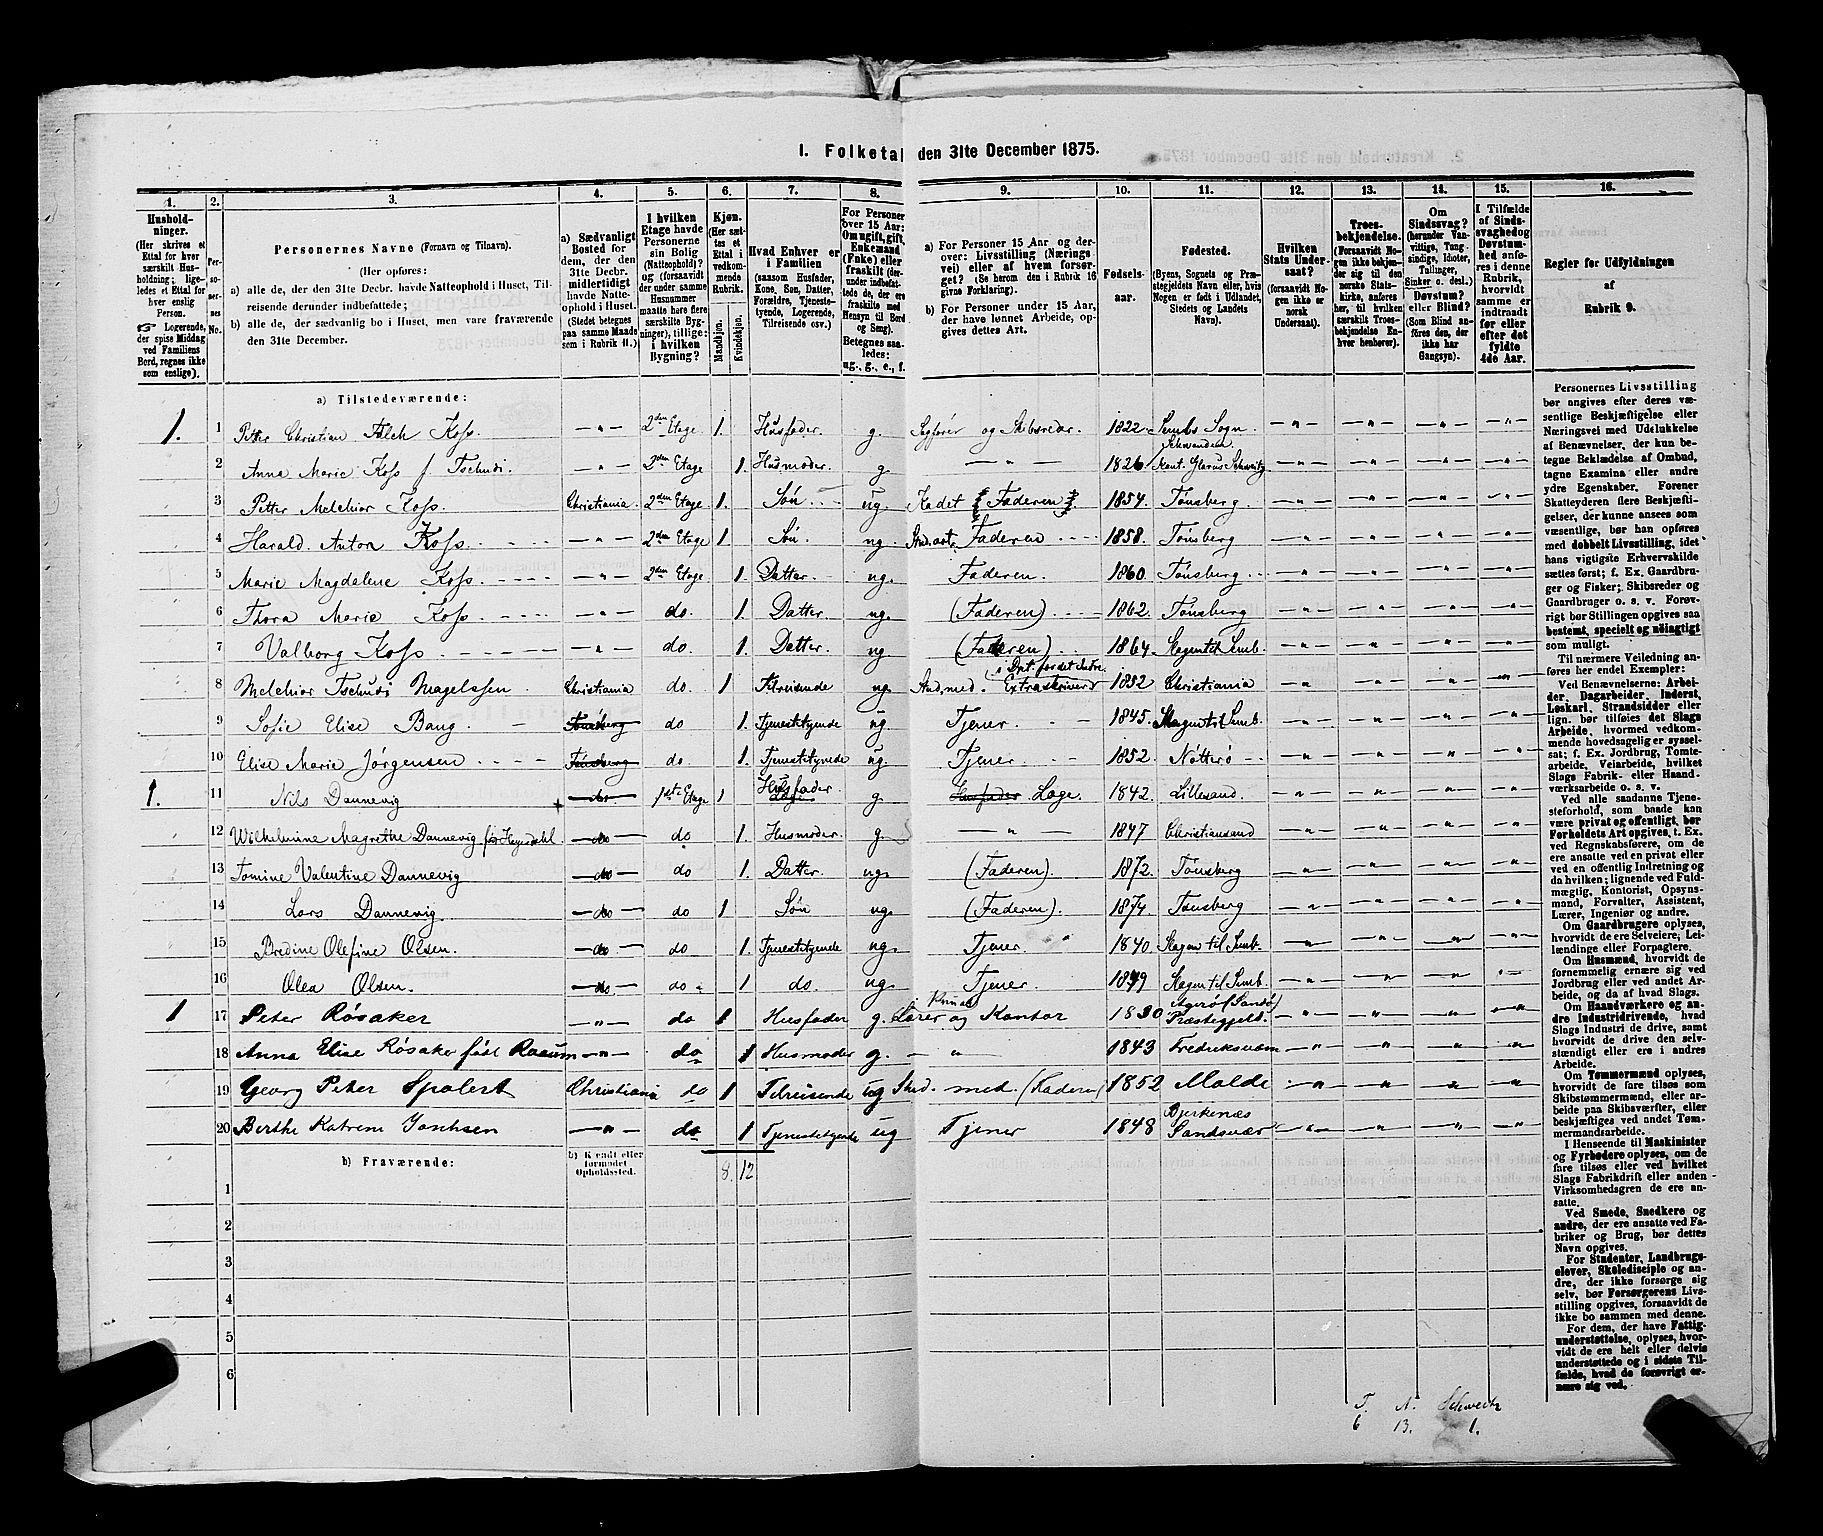 1. Folketal den 31te December 1875.
1. 2. 3. 4. 5. 6. 7. 8. 9. 10. 11. 12. 13. 14. 15. 16.
Hushold-
ninger.
(Her skrives et
Ettal for hver
særskilt Hus-
holdning; lige-
ledes et Ettal for
hver enslig
Person.
☞ Logerende,
der spise Middag
ved Familiens
Bord, regnes ikke
som enslige).
Per-
so-
ner-
nes
No.
Personernes Navne (Fornavn og Tilnavn).
(Her opføres:
a) alle de, der den 31te Decbr. havde Natteophold i Huset, Til-
reisende derunder indbefattede;
b) alle de, der sædvanlig bo i Huset, men vare fraværende
den 31te December.
a) Sædvanligt
Bosted for
dem, der den
31te Decbr.
midlertidigt
havde Natte-
ophold i Huset.
(Stedet betegnes
paa samme Maade
som i Rubrik 11.)
I hvilken
Etage havde
Personerne
sin Bolig
(Natteophold)?
(forsaavidt
der under samme
Husnummer
maatte høre flere
særskilte Byg-
ninger), tillige:
i hvilken
Bygning?
Kjøn.
(Her sæt-
tes et
Ettal i
vedkom-
mende
Rubrik.
Mandkjøn.
Kvindekjøn.
Hvad Enhver er
i Familien
(saasom Husfader,
Kone, Søn, Datter,
Forældre, Tjeneste-
tyende, Logerende,
Tilreisende osv.)
For Personer
over 15 Aar:
Om ugift, gift,
Enkemand
(Enke) eller
fraskilt (der-
under indbefat-
tede de, der ere
fraskilte med
Hensyn til Bord
og Seng).
Betegnes saa-
ledes:
ug., g., e., f.
a) For Personer 15 Aar og der-
over: Livsstilling (Nærings-
vei) eller af hvem forsør-
get? (Se herom den i Rubrik 16
givne Forklaring).
b) For Personer under 15 Aar,
der have lønnet Arbeide, op-
gives dettes Art.
Fødsels-
aar.
Fødested.
(Byens, Sognets og Præ-
stegjeldets Navn, eller, hvis
Nogen er født i Udlandet,
Stedets og Landets
Navn).
Hvilken
Stats Under-
saat?
(forsaavidt No-
gen ikke er
norsk
Undersaat).
Troes-
bekjendelse.
(Forsaavidt No-
gen ikke bekjen-
der sig til den
norske Stats-
kirke, anføres
her, til hvilken
særskilt Troes-
bekjendelse En-
hver henhører).
Om
Sindssvag?
(herunder Van-
vittige, Tung-
sindige, Idioter,
Tullinger,
Sinker o. desl.)
Døvstum?
eller Blind?
(Som Blind an-
føres den, der
ikke har
Gangsyn).
I Tilfælde
af Sinds-
svaghed og
Døvstum-
hed anfø-
res i denne
Rubrik,
hvorvidt
samme er
indtraadt
før eller
efter det
fyldte
4de Aar.
Regler for Udfyldningen
af
Rubrik 9.
a) Tilstedeværende:
1. 1 Petter Christian Falch Koss. — " — 2den Etage 1. Husfader. g. Sagfører og Skibsreder. 1822. Sembs Sogn — " — — " — — " — — " —
2 Anna Marie Koss f Tschudi. — " — 2den Etage 1. Husmoder. g — " — 1826. Schwanden Kant. Glarus Schweitz — " — — " — — " — — " —
3 Petter Melchior Koss. Christiania. 2den Etage 1. Søn ug. Kadet (Faderen). 1854. Tønsberg. — " — — " — — " — — " —
4 Harald Anton Koss — " — 2den Etage 1 Søn. ug. Stud. art. Faderen 1858. Tønsberg — " — — " — — " — — " —
5 Marie Magdalene Koss. — " — 2den Etage 1. Datter. ug. Faderen. 1860. Tønsberg — " — — " — — " — — " —
6 Thora Marie Koss. — " — do. 1. Datter ug. (Faderen) 1862. Tønsberg — " — — " — — " — — " —
7 Valborg Koss. — " — do. 1. Datter. ug (Faderen) 1864. Slagen til Semb. — " — — " — — " — — " —
8 Melchior Tschudi Magelssen. Christiania do. 1 Tilreisende ug. Stud. med. Extraskriver i Dpt. for det Indre. 1852 Christiania — " — — " — — " — — " —
9 Sofie Elise Bang. Tønsberg do 1. Tjenestetyende ug. Tjener. 1845. Slagen til Semb. — " — — " — — " — — " —
10 Elise Marie Jørgensen Tønsberg do. 1. Tjenestetyende ug. Tjener. 1852. Nøtterø — " — — " — — " — — " —
1. 11 Nils Dannevig do 1ste Etage 1 Husfader g. Husfader Læge. 1842. Lillesand. — " — — " — — " — — " —
12 Wilhelmine Magrethe Dannevig do do 1. Husmoder. g. — " — 1847 Christiansand — " — — " — — " — — " —
13 Tomine Valentine Dannevig do do 1. Datter. ug. (Faderen). 1872. Tønsberg — " — — " — — " — — " —
14 Lars Dannevig. do do 1 Søn ug. (Faderen). 1874. Tønsberg. — " — — " — — " — — " —
15 Bredine Olefine Olsen. do do 1. Tjenestetyende ug. Tjener. 1840. Slagen til Semb. — " — — " — — " — — " —
16 Olea Olsen. do do. 1 do. ug. Tjener. 1849 Slagen til Semb. — " — — " — — " — — " —
1 17 Peter Røsaker — " — do 1 Husfader g. Lærer og Kantor 1830 Præstegjeld. — " — — " — — " — — " —
18 Anna Elise Røsaker født Raeum — " — do 1 Husmoder g. — " — 1843 Fredriksværn — " — — " — — " — — " —
19 Georg Peter Spolert Christiania do 1 Tilreisende ug Stud. med. (Faderen) 1852 Molde — " — — " — — " — — " —
20 Berthe Katrine — " — do 1 Tjenestetyende ug Tjener 1848 Sandsvær — " — — " — — " — — " —
b) Fraværende:
b) Kjendt eller
formodet
Opholdssted.
8. 12
1
2
3
4
5
6
Personernes Livsstilling
bør angives efter deres væ-
sentlige Beskjæftigelse eller
Næringsvei med Udelukkelse
af Benævnelser, der kun be-
tegne Beklædelse af Ombud,
tagne Examina eller andre
ydre Egenskaber. Forener
Skatteyderen flere Beskjæfti-
gelser, der kunne ansees som
væsentlige, bør han opføres
med dobbelt Livsstilling, idet
hans vigtigste Erhvervskilde
sættes først; f. Ex. Gaardbru-
ger og Fisker; Skibsreder og
Gaardbruger o. s. v. Forøv-
rigt bør Stillingen opgives saa
bestemt, specielt og nøiagtigt
som muligt.
Til nærmere Veiledning an-
føres her endel Exempler:
Ved Benævnelserne: Arbei-
der, Dagarbeider, Inderst,
Løskarl, Strandsidder eller
lign. bør tilføies det Slags
Arbeide, hvormed vedkom-
mende hovedsagelig er syssel-
sat; f. Ex. Jordbrug, Tomte-
arbeide, Veiarbeide, hvilket
Slags Fabrik- eller Haand-
værksarbeide o. s. v.
Ved alle saadanne Tjene-
steforhold, som baade kan
være privat og offentligt, bør
Forholdets Art opgives, t. Ex.
ved Regnskabsførere, om de
ere ansatte ved en privat eller
en offentlig Indretning og
da hvilken; lignende ved Fuld-
mægtig, Kontorist, Opsyns-
mand, Forvalter, Assistent,
Lærer, Ingeniør og andre.
Om Gaardbrugere oplyses,
hvorvidt de ere Selveiere, Lei-
lændinge eller Forpagtere.
Om Husmænd, hvorvidt de
fornemmelig ernære sig ved
Jordbrug eller ved andet Ar-
beide, og da af hvad Slags.
Om Haandværkere og an-
dre Industridrivende, hvad
Slags Industri de drive, samt
hvorvidt de drive den selv-
stændigt eller ere i andres
Arbeide.
Om Tømmermænd oplyses,
hvorvidt de fare tilsøs som
Skibstømmermænd, eller ar-
beide paa Skibsværfter, eller
beskjæftiges ved andet Tøm-
mermandsarbeide.
I Henseende til Maskinister
og Fyrbødere oplyses, om de
fare tilsøs eller ved hvilket
Slags Fabrikdrift eller anden
Virksomhedsgren de ere an-
satte.
Ved Smede, Snedkere og
andre, der ere ansatte ved Fa-
briker og Brug, bør dettes
Navn opgives.
For Studenter, Landbrugs-
elever, Skoledisciple og an-
dre, der ikke forsørge sig
selv, bør Forsørgerens Livs-
stilling opgives, forsaavidt de
ikke bo sammen med denne.
For dem, der have Fattig-
understøttelse, oplyses, hvor-
vidt de ere helt eller delvis
understøttede og i sidste Til-
fælde, hvad de forøvrigt er-
nære sig ved.
T. N. Schweitz
6 13. 1.